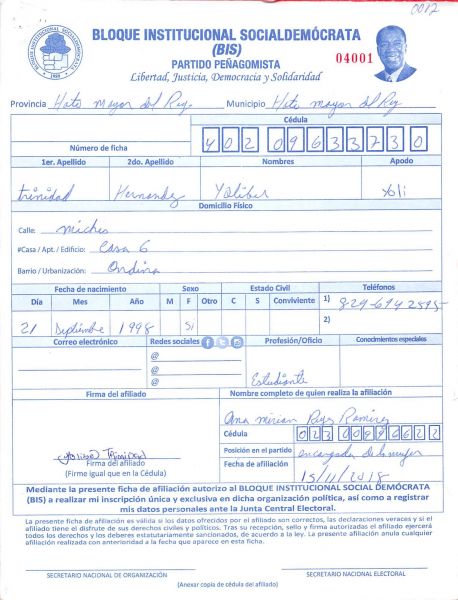 0012
BLOQUE INSTITUCIONAL SOCIALDEMÓCRATA
(BIS)
PARTIDO PEÑAGOMISTA
Libertad, Justicia, Democracia y Solidaridad
04001
Provincia Hato mayor del Rey Municipio Hato mayor del Rey
Cédula
Número de ficha 402 0963373 0
1er. Apellido 2do. Apellido Nombres Apodo
trinidad Hernandez Yoliber Yoli
Domicilio Físico
Calle: miches
#Casa / Apt. / Edificio: Casa 6
Barrio / Urbanización: Ondina
Fecha de nacimiento Sexo Estado Civil Teléfonos
Día Mes Año M F Otro C S Conviviente 1) 829 694 2895
21 Septiembre 1998 Si 2)
Correo electrónico Redes sociales Profesión/Oficio Conocimientos especiales
@
@
@ Estudiante
Firma del afiliado Nombre completo de quien realiza la afiliación
Ana mirian Reyes Ramirez
Cédula 023 0098662 2
Posición en el partido encargada de la mujer
Firma del afiliado
(Firme igual que en la Cédula)
Fecha de afiliación 15/11/2018
Mediante la presente ficha de afiliación autorizo al BLOQUE INSTITUCIONAL SOCIAL DEMÓCRATA
(BIS) a realizar mi inscripción única y exclusiva en dicha organización política, así como a registrar
mis datos personales ante la Junta Central Electoral.
La presente ficha de afiliación es válida si los datos ofrecidos por el afiliado son correctos, las declaraciones veraces y si el
afiliado tiene el disfrute de sus derechos civiles y políticos. Tras su recepción, sello y firma autorizados el afiliado ejercerá
todos los derechos y los deberes estatutariamente sancionados, de acuerdo a la ley. La presente afiliación anula cualquier
afiliación realizada con anterioridad a la fecha que aparece en esta ficha.
SECRETARIO NACIONAL DE ORGANIZACIÓN SECRETARIO NACIONAL ELECTORAL
(Anexar copia de cédula del afiliado)